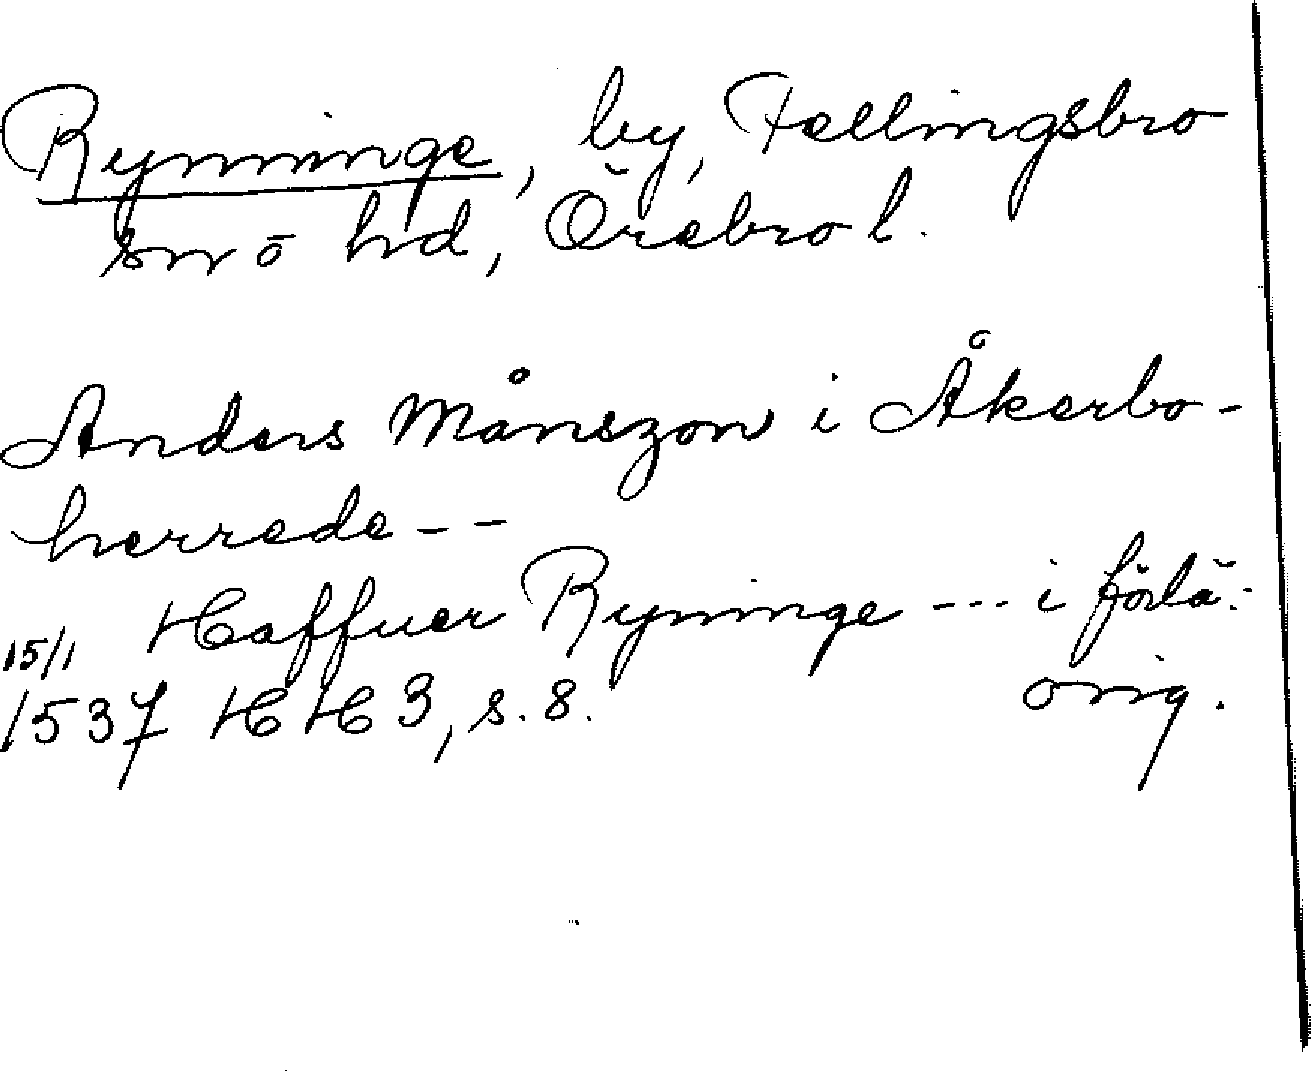 Rynninge, by, Fellingsbro
sn o hd, Örebro l.
Anders Månszon i Åkerbo-
herrede --
Haffuer Ryninge --- i förlä:
15/1
1537 HH 3, s. 8. orig.